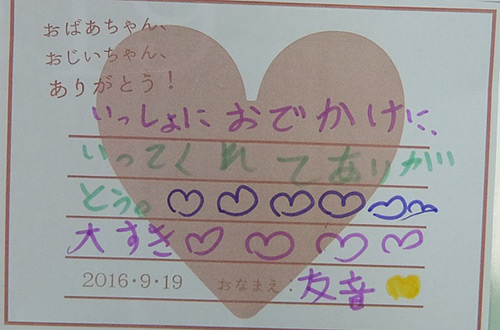 おばあちゃん、
おじいちゃん、
ありがとう！
いっしょに おでかけに、
いってくれてありがが
とう。♡♡♡♡♡♡
大すき♡♡♡♡
2016・9・19 おなまえ：友音♡